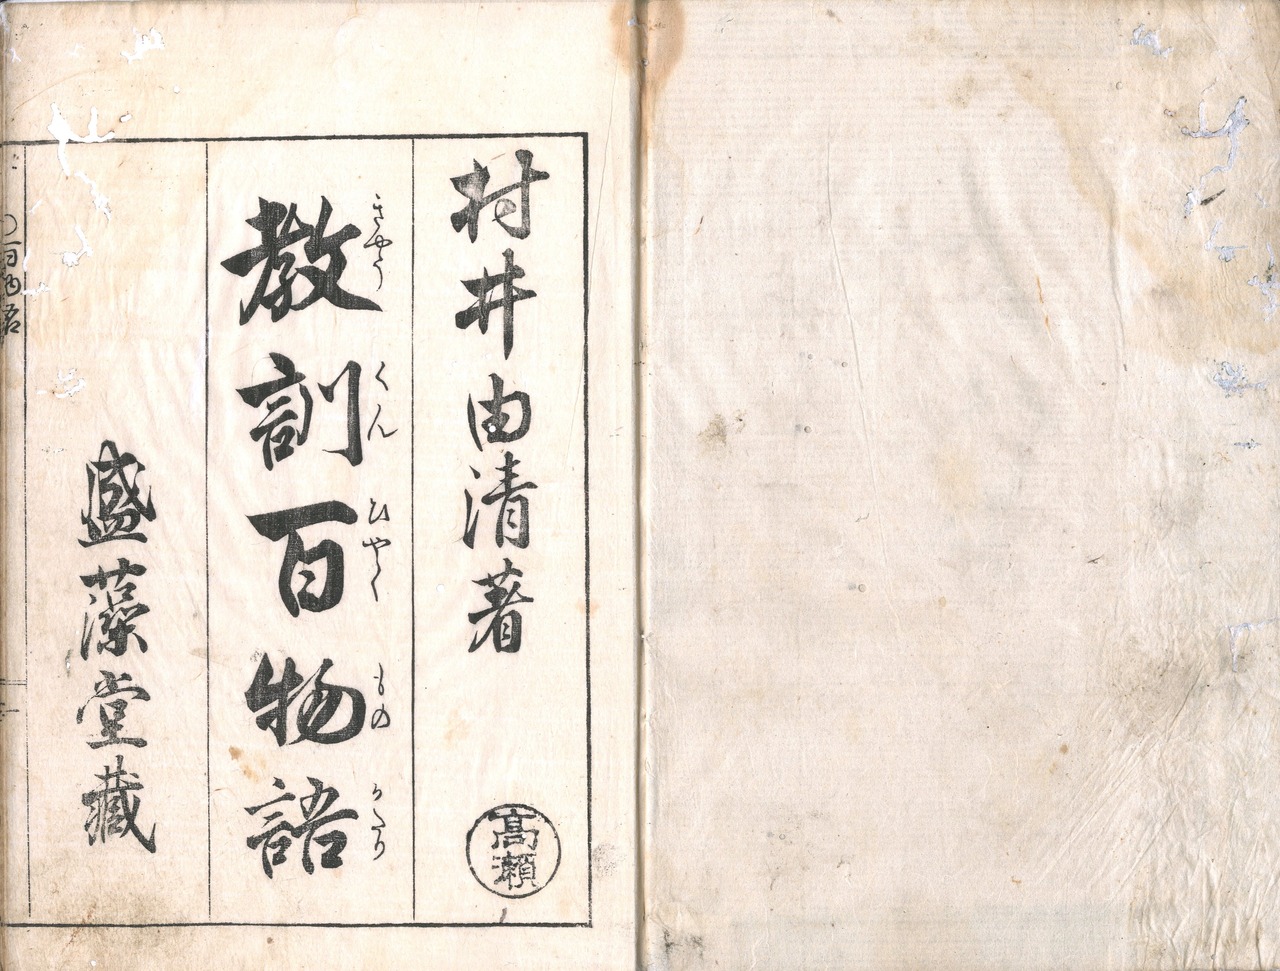 村井由清著
高瀬
教訓百物語
きやう くん ひやく もの かたり
盛藻堂藏
百物語